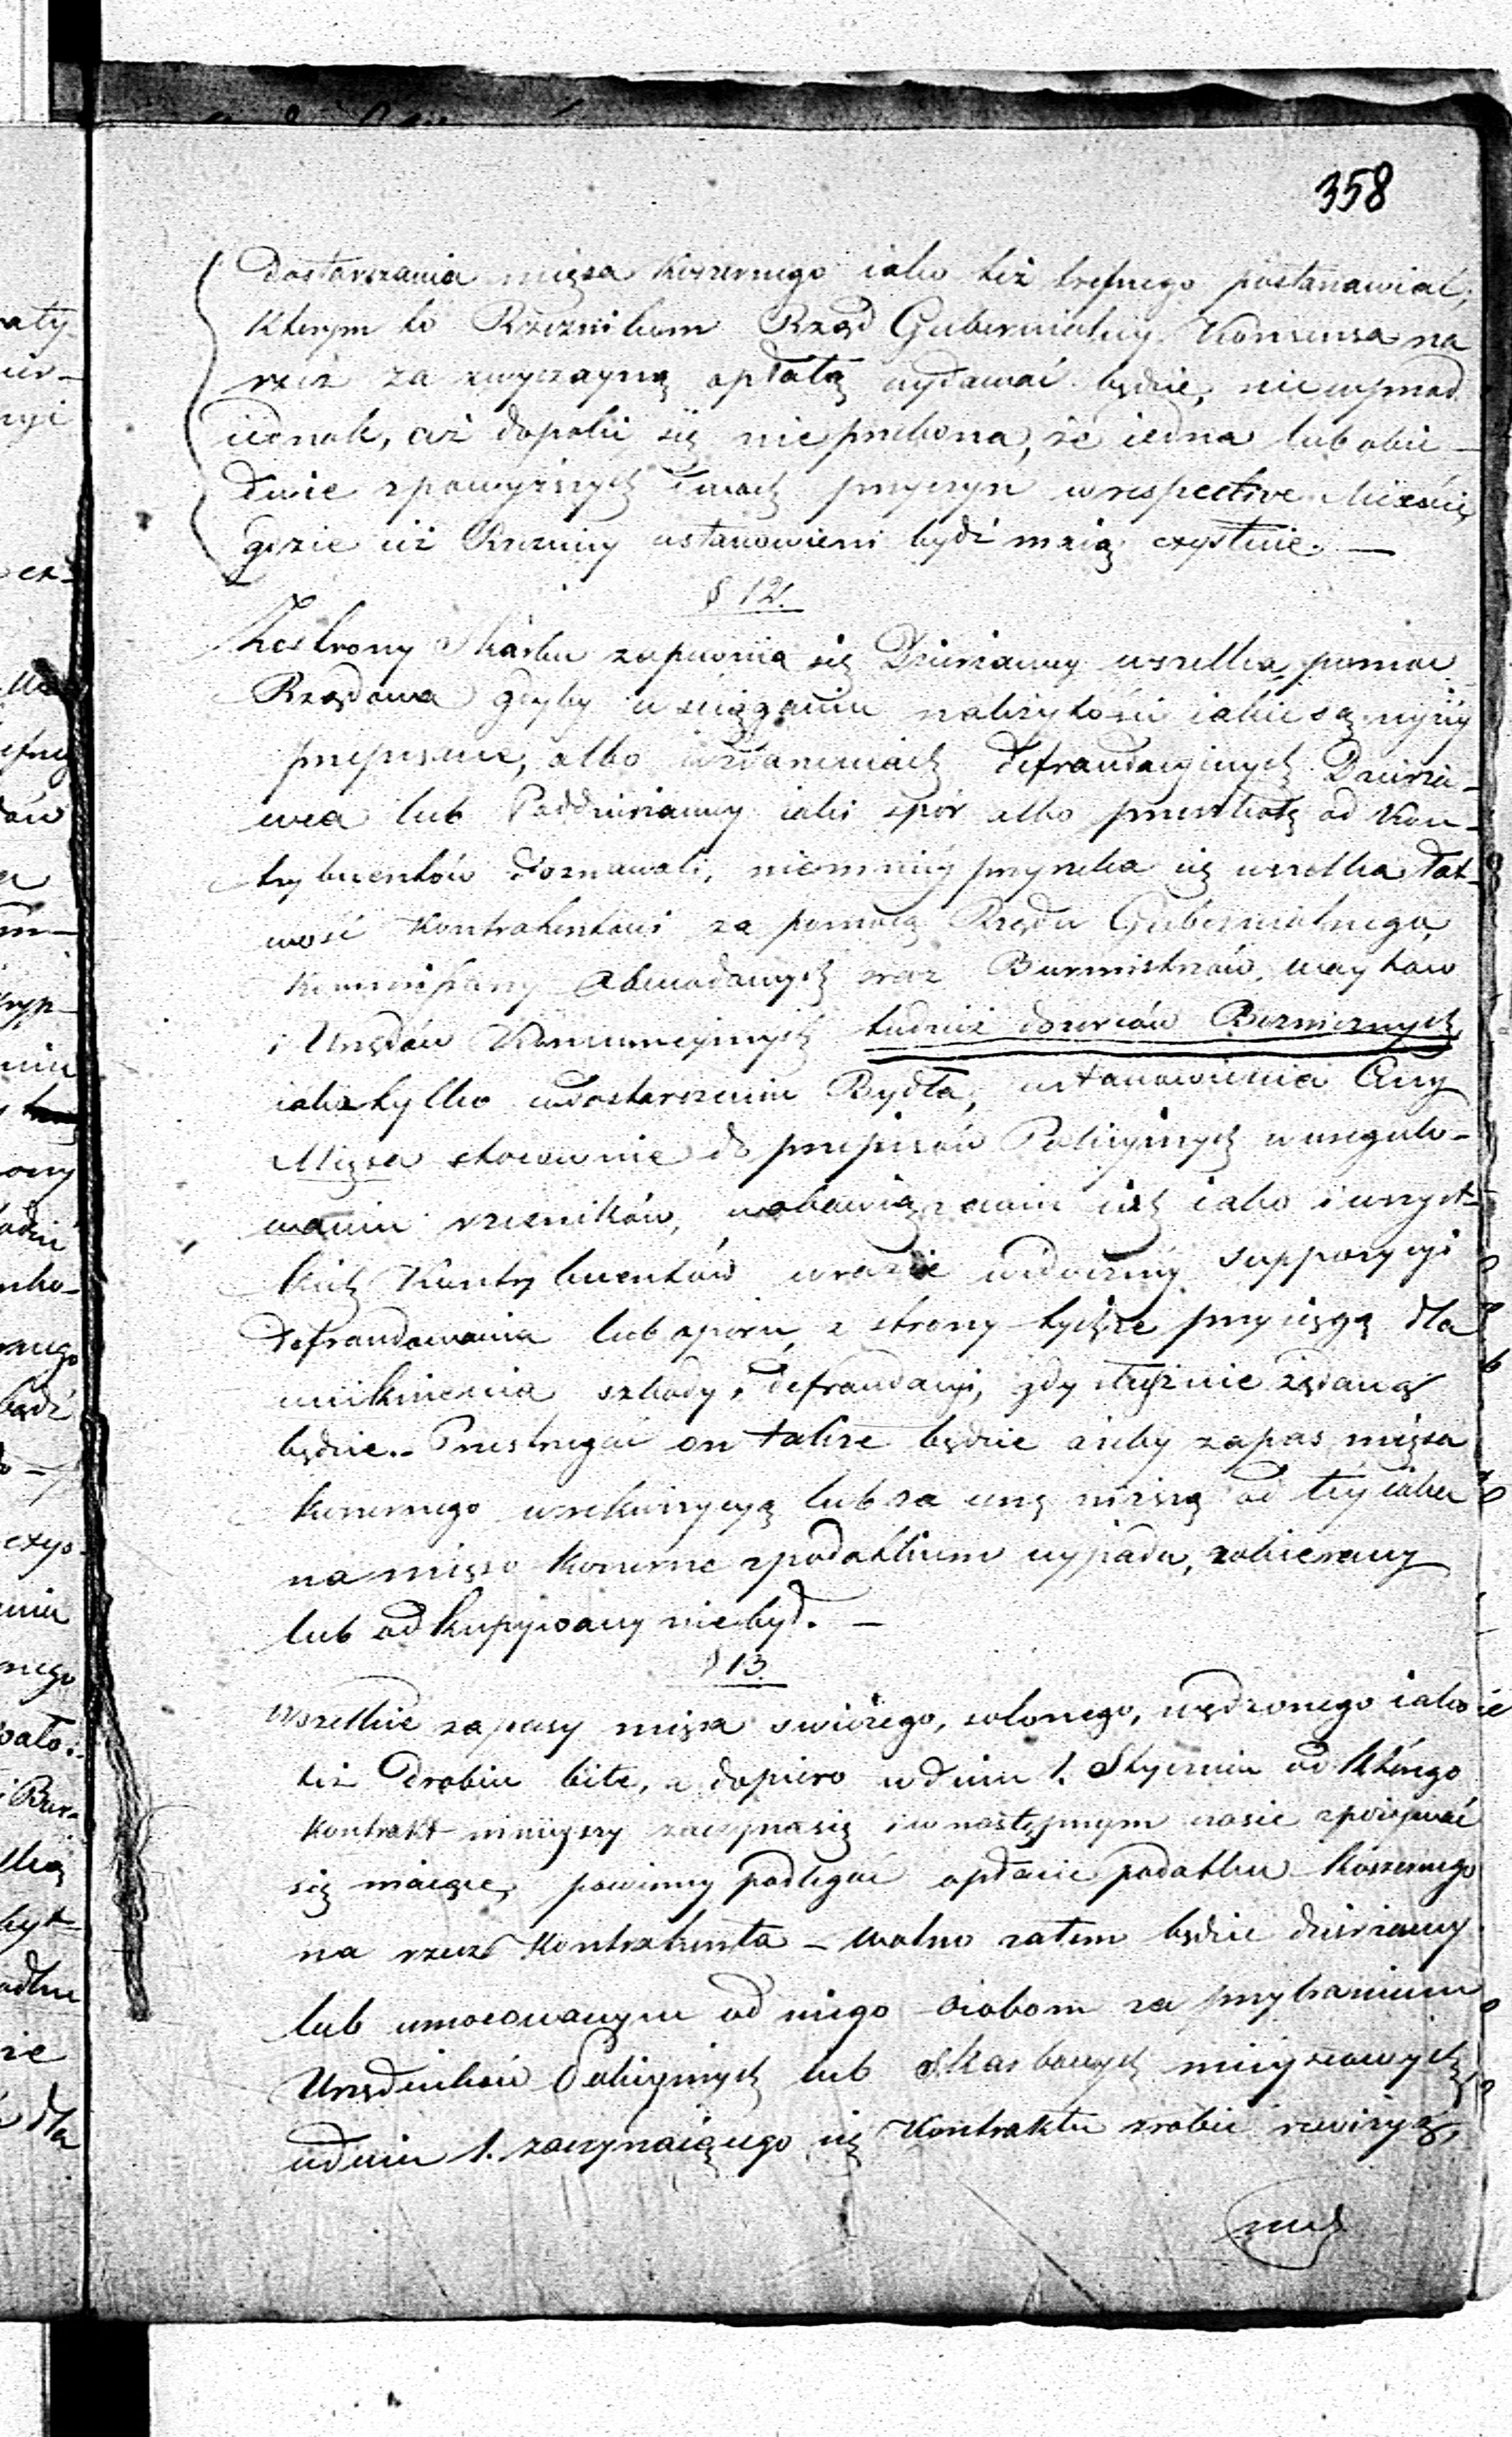 358
dostarszania mięsa koszernego iako też trefnego postanawiał;
którym to Rzeznikom Rząd Gubernialny Konsensa na
rzez za zwyczayną opłatą wydawać będzie, niewprzod
iednak, aż dopoki się nie przekona, że iedna lub obie
dwie zpowyższych dwoch przyczyn w respective Mieście
gdzie iuż Rzeznicy ustanowieni bydź maią exystuie. —
§ 12.
Ze strony Skarbu zapewnia się Dzierzawcy wszelka pomoc
Rządowa gdyby w sciąganiu należytości iakie są wyżéy
przepisane, albo w zdarzeniach defraudacyinych Dzierza-
wca lub Poddzierzawcy iaki spór albo przeszkodę od Kon-
trybuentów doznawali, niemniéy przyrzeka się wszelka łat-
wość Kontrahentowi za pomocą Rządu Gubernialnego,
Kommissarzy Obwodowych oraz Burmistrzów, woytow
i Urzędów Konsumcyinych tudzież dozorców Bozniczych
iako tylko w dostarczeniu Bydła, ustanowienia Ceny
Mięsa stosownie do przepisów Policyinych w uregulo-
waniu rzezników, w obowiązaniu ich iako i wszyst-
kich Kontrybuentów w razie widoczney suppozycyi
defraudowania lub sporu, z strony tychże przysięgą dla
uniknienia szkody i defraudacyi, gdy słusznie żądaną
będzie. – Przestrzegać on także będzie ażeby zapas mięsa
koszernego w rekwizycyą lub za cenę niższą od téy iaka
na mięso koszerne z podatkiem wypada, zabierany
lub odkupywany nie był. —
§ 13.
Wszelkie zapasy mięsa swieżego, solonego, wędzonego iako
też drobiu bite, a dopiero w dniu 1. Stycznia od którego
Kontrakt ninieyszy zaczyna się i w następnym czasie spożywać
się maiące, powinny podlegać opłacie podatku koszernego
na rzecz Kontrahenta – wolno zatem będzie dzierzawcy
lub umocowanym od niego osobom za przybraniem
Urzędników Policyinych lub Skarbowych mieyscowych
w dniu 1. zaczynaiącego się Kontraktu zrobić rewizyą,